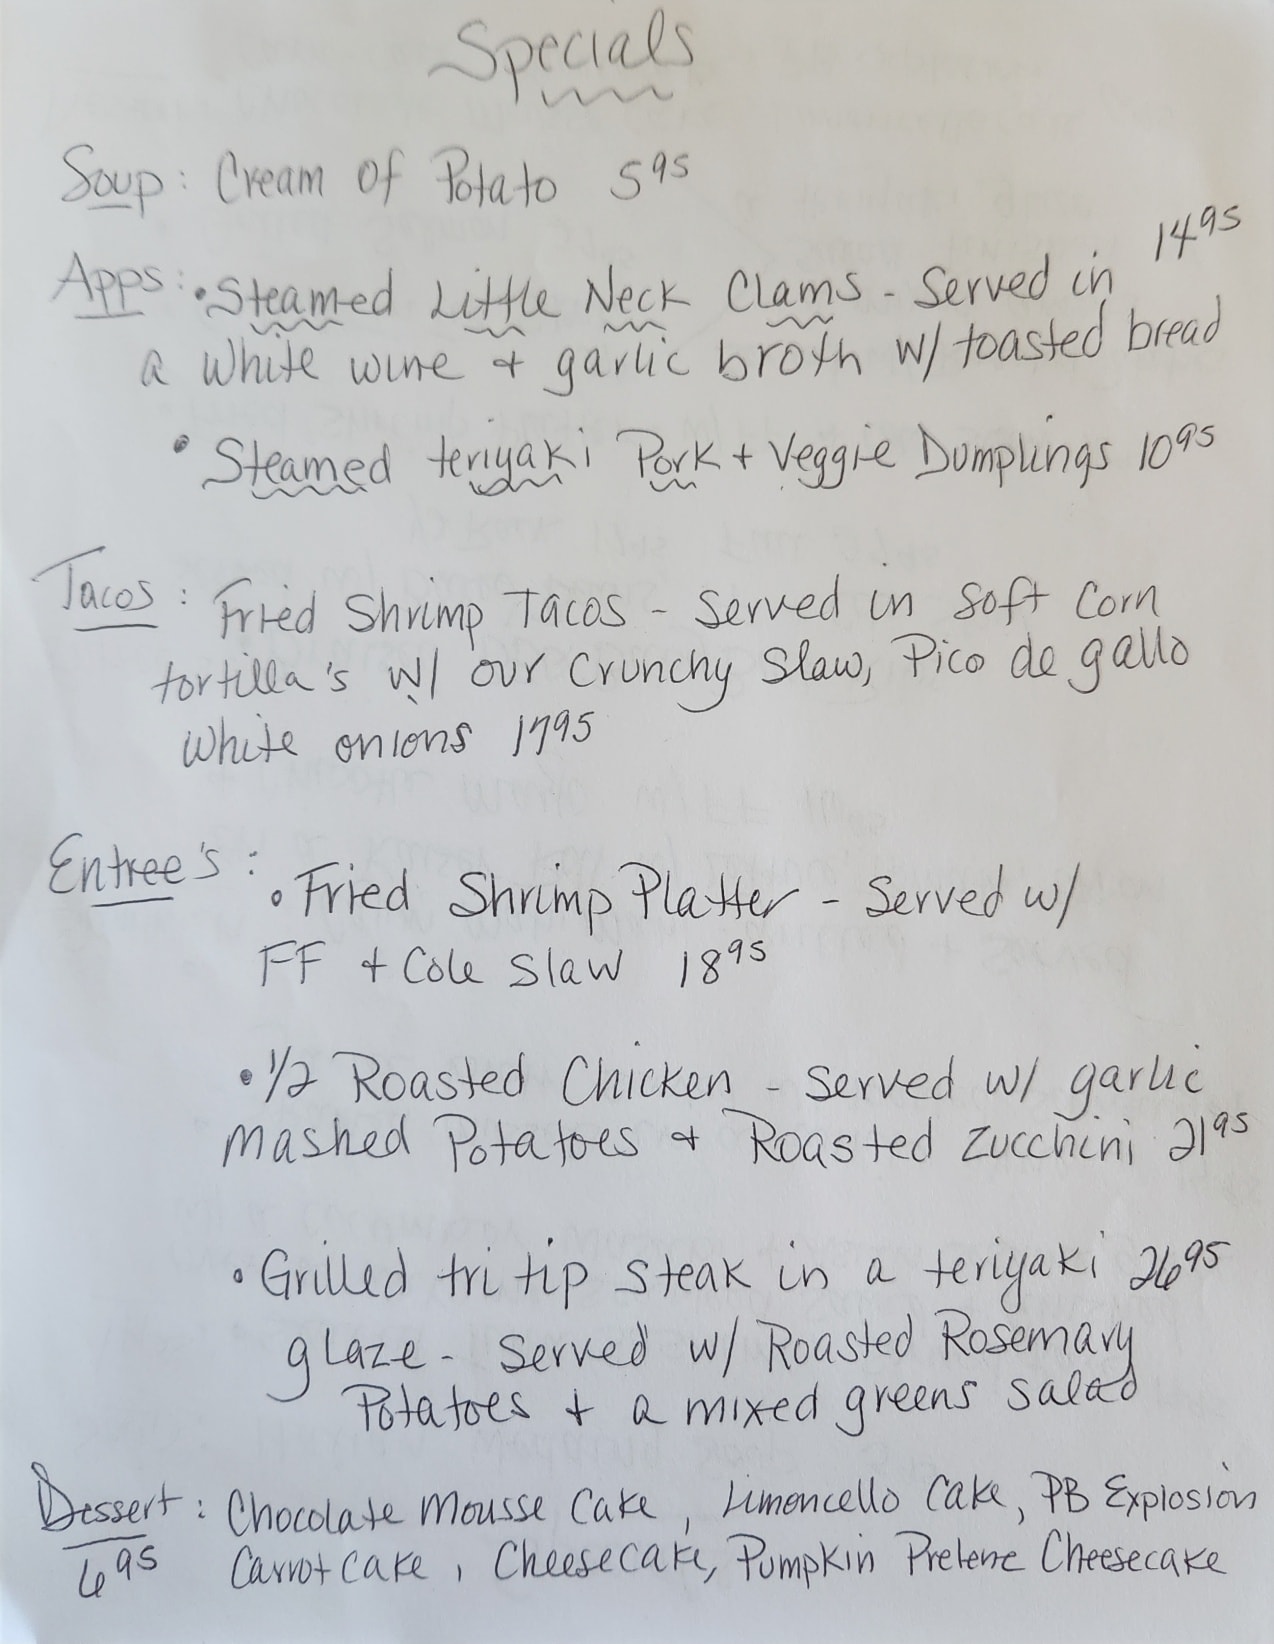 Specials
Soup: Cream of Potato 5 95
Apps: • Steamed Little Neck Clams - Served in 14 95
a white wine + garlic broth w/ toasted bread
• Steamed teriyaki Pork + Veggie Dumplings 10 95
Tacos: Fried Shrimp Tacos - Served in soft Corn
tortilla's w/ our Crunchy Slaw, Pico de gallo
white onions 17 95
Entree's:
• Fried Shrimp Platter - Served w/
FF + Cole Slaw 18 95
• 1/2 Roasted Chicken - served w/ garlic
mashed Potatoes + Roasted Zucchini 21 95
• Grilled tri tip steak in a teriyaki 26 95
glaze - served w/ Roasted Rosemary
Potatoes + a mixed greens salad
Dessert: Chocolate Mousse Cake, Limoncello Cake, PB Explosion
6 95 Carrot Cake, Cheesecake, Pumpkin Prelene Cheesecake